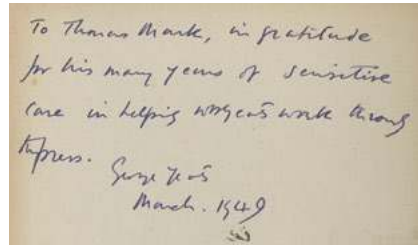 To Thomas Mark, in gratitude
for his many years of sensitive
care in helping WBYeats work through
the press.
George Yeats
March. 1949